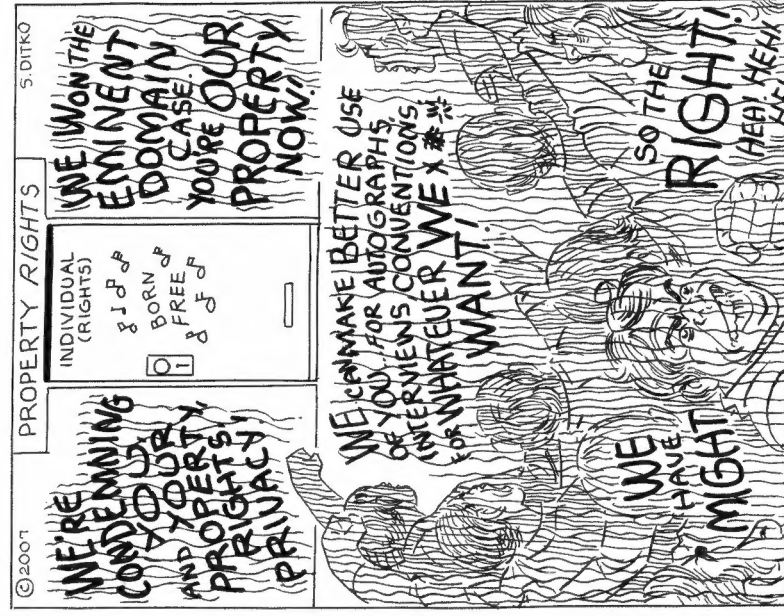 ©2007
PROPERTY RIGHTS
S. DITKO
WE'RE
CONDEMNING
YOU,
YOUR
AND PROPERTY,
PROPERTY
RIGHTS,
PRIVACY
INDIVIDUAL
(RIGHTS)
BORN
FREE
WE WON THE
EMINENT
DOMAIN
CASE.
YOU'RE OUR
PROPERTY
NOW!
WE CAN MAKE BETTER USE
OF YOU..FOR AUTOGRAPHS,
INTERVIEWS, CONVENTIONS,
FOR WHATEVER WE
WANT!
WE
HAVE
MIGHT
SO THE
RIGHT!
(HEH, HEH)